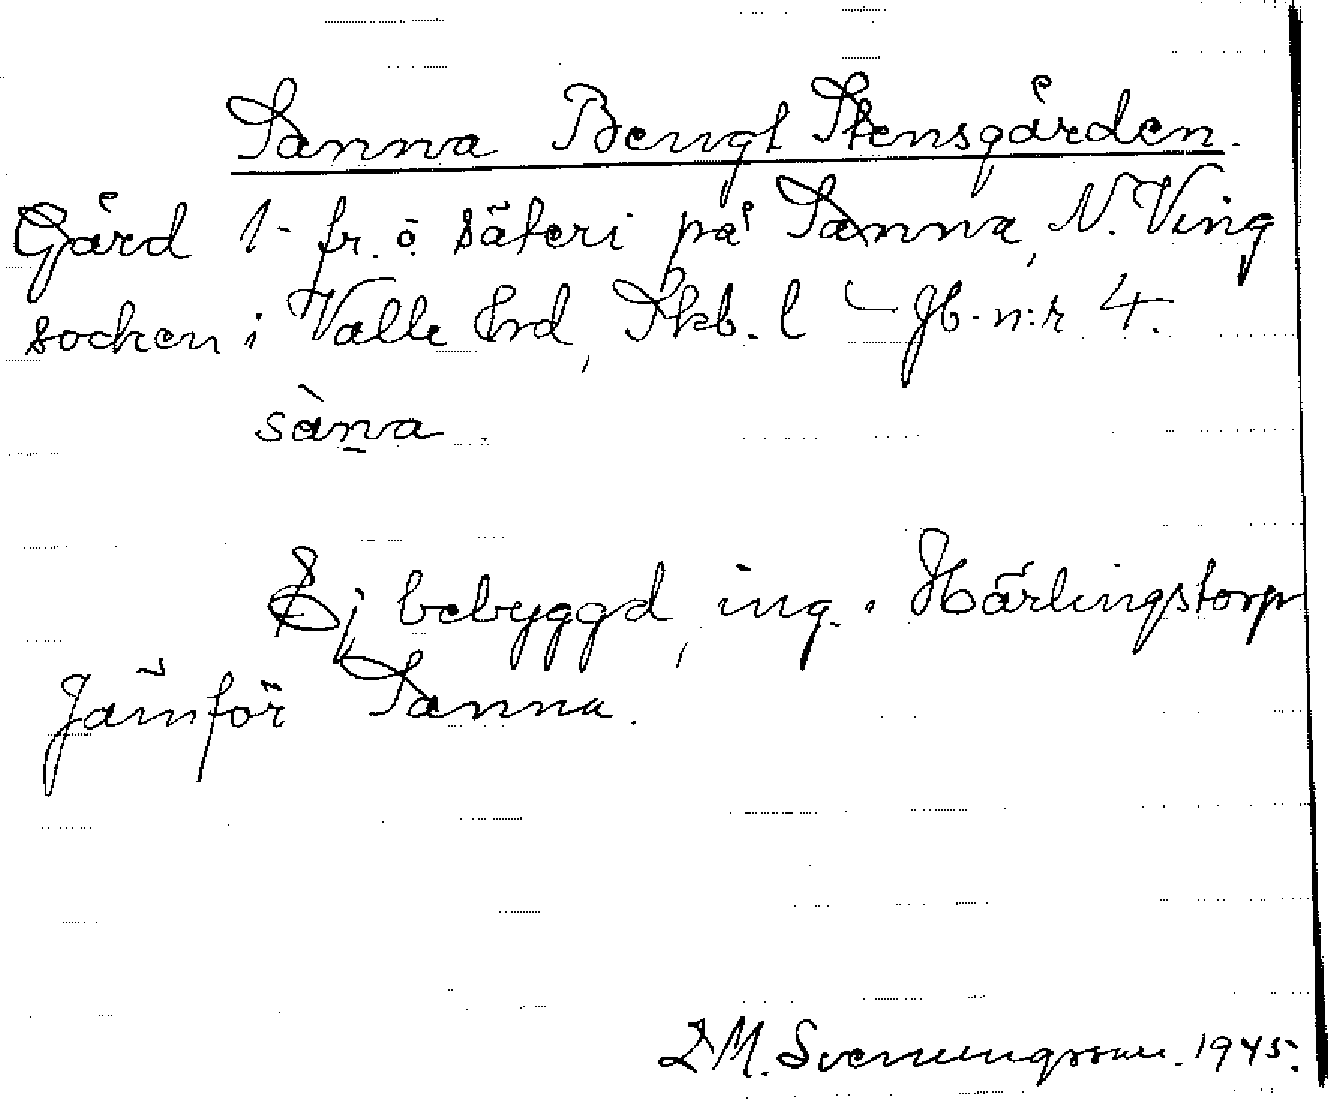 Sanna Bengt Stensgården.
Gård 1- fr. ö säteri på Sanna, N. Ving
socken i Valle hrd, Skb. l – Jb. n:r 4.
sàna
Ej bebyggd, ing. i Härlingstorp
Jämför Sanna.
M. Svenungsson. 1945.